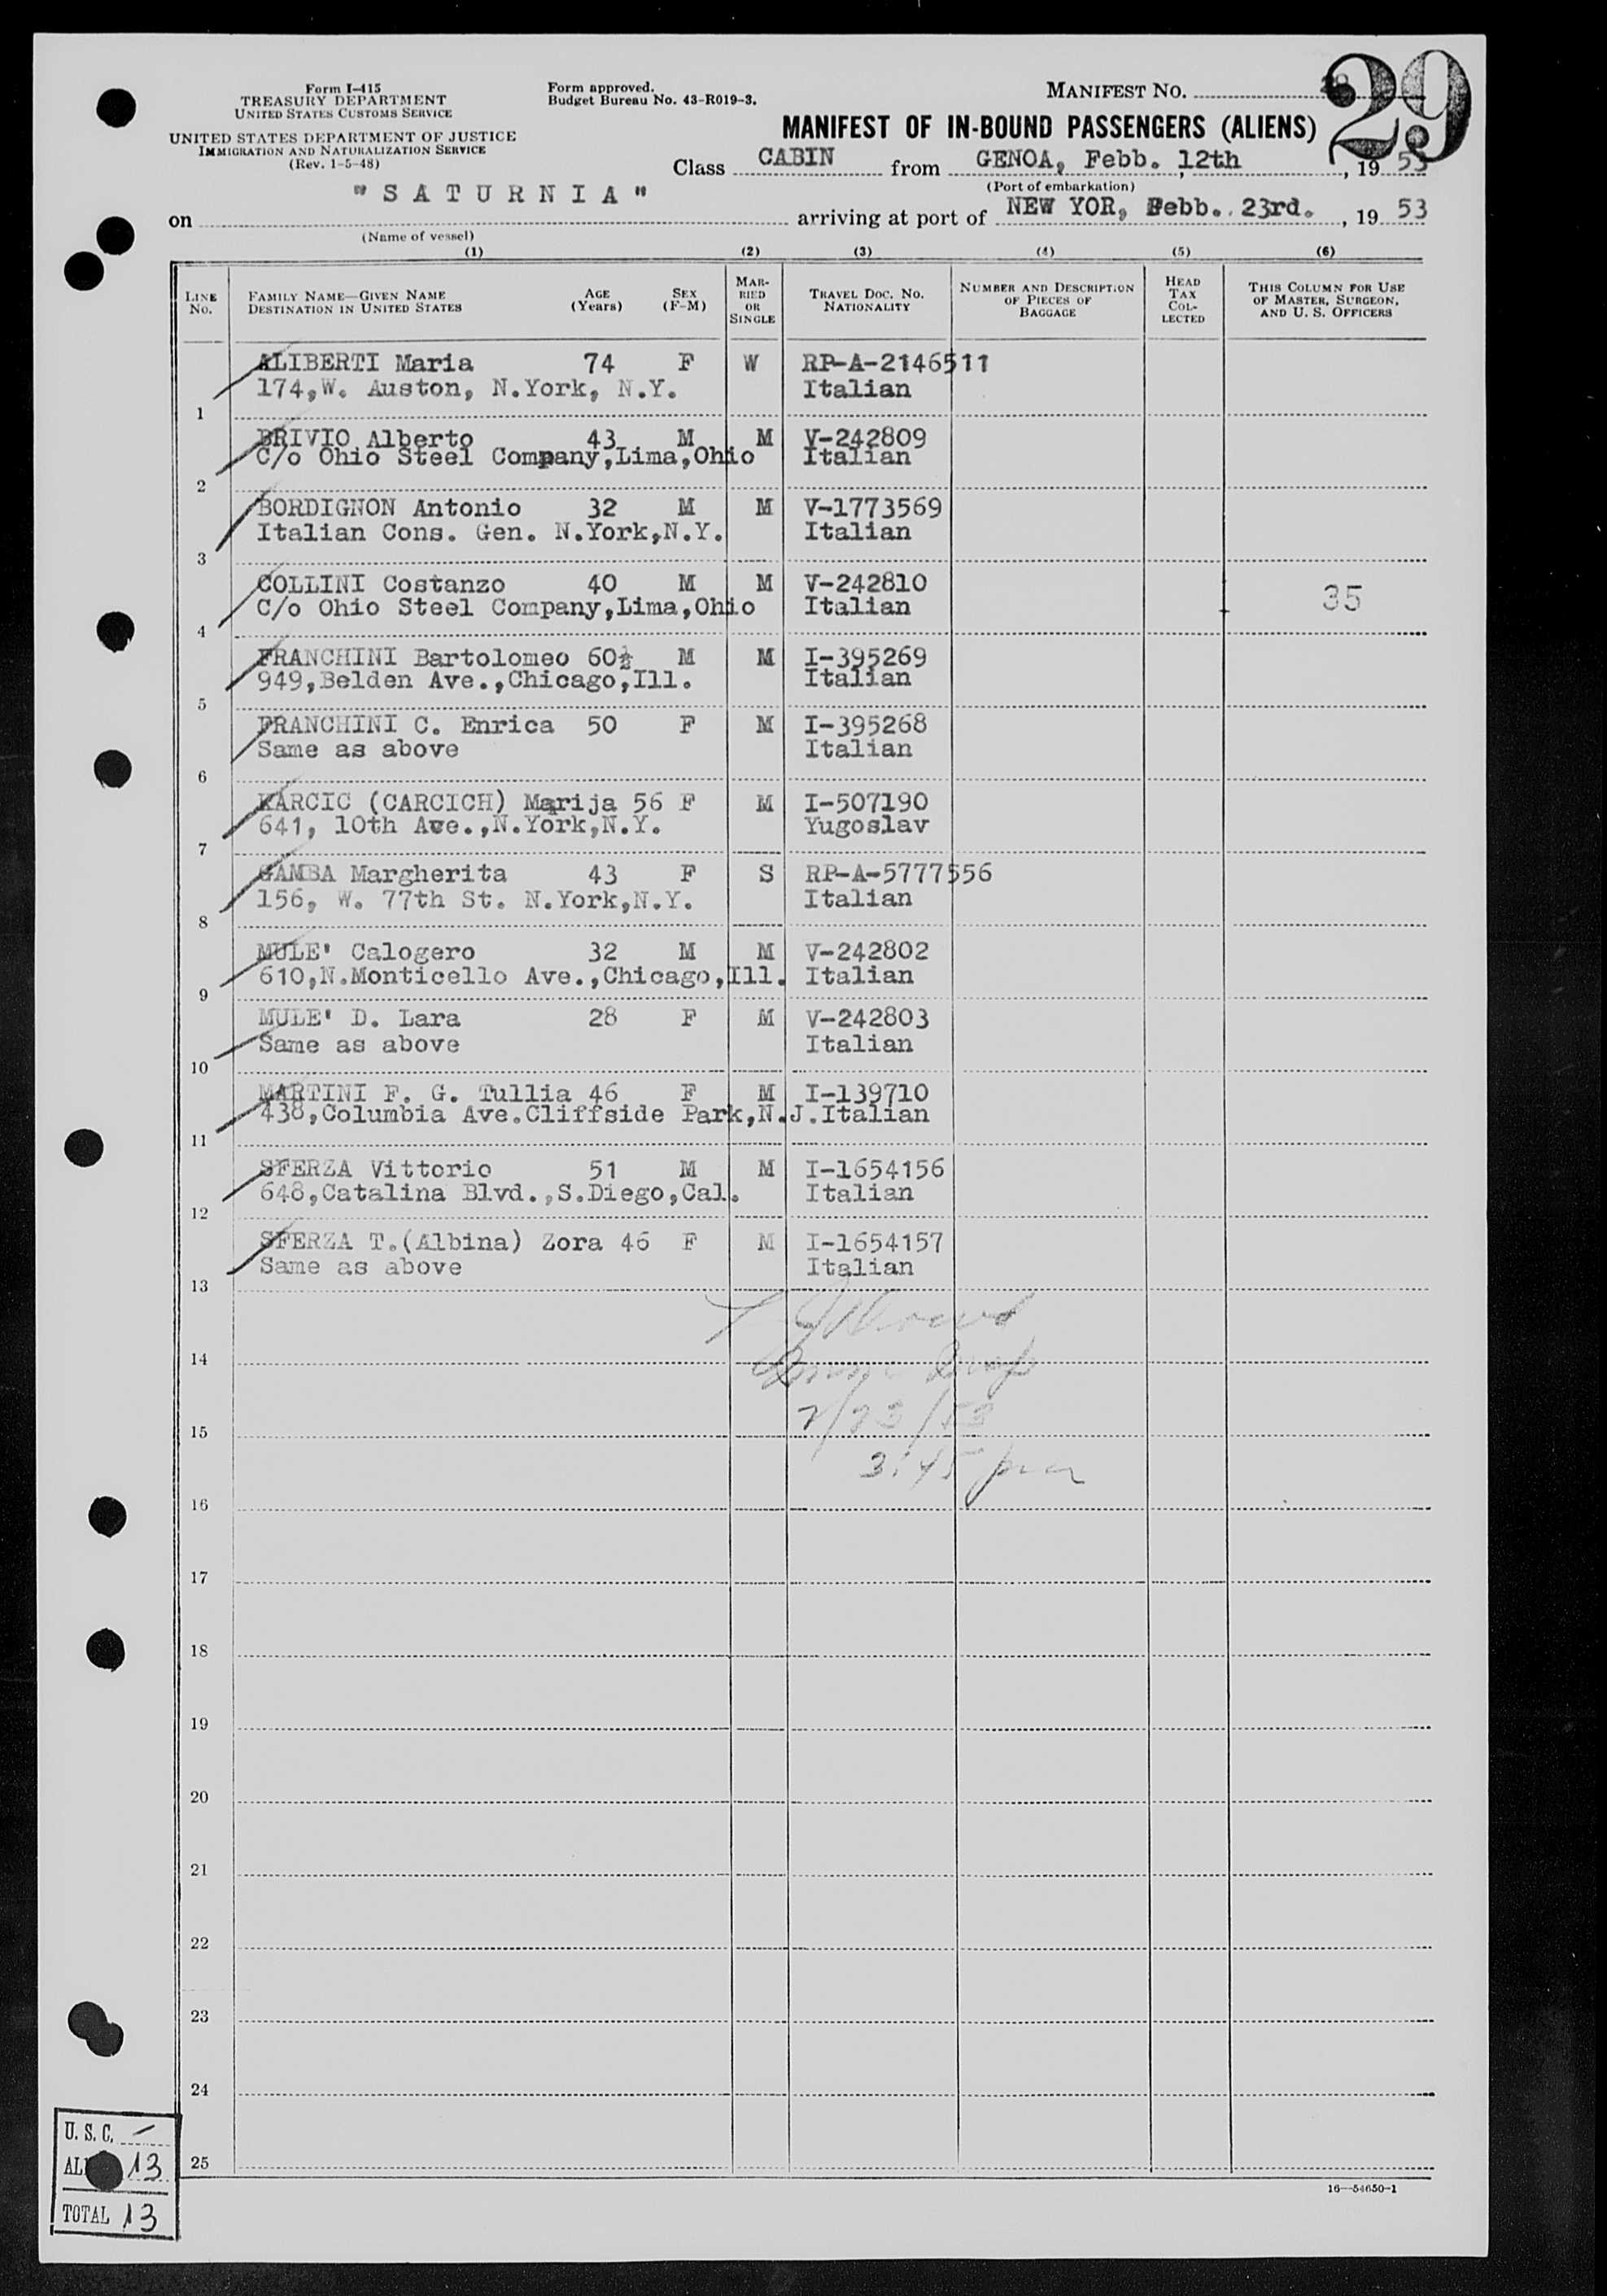 Form I-415
TREASURY DEPARTMENT
UNITED STATES CUSTOMS SERVICE
UNITED STATES DEPARTMENT OF JUSTICE
IMMIGRATION AND NATURALIZATION SERVICE
(Rev. 1-5-48)
Form approved.
Budget Bureau No. 43-R019-3.
MANIFEST NO.
29
MANIFEST OF IN-BOUND PASSENGERS (ALIENS)
Class CABIN from GENOA, Febb. 12th, 19 53
(Port of embarkation)
on "SATURNIA" arriving at port of NEW YOR, Febb. 23rd., 19 53
(Name of vessel)
(1) (2) (3) (4) (5) (6)
LINE NO. FAMILY NAME—GIVEN NAME DESTINATION IN UNITED STATES AGE (Years) SEX (F-M) MARRIED OR SINGLE TRAVEL DOC. NO. NATIONALITY NUMBER AND DESCRIPTION OF PIECES OF BAGGAGE HEAD TAX COLLECTED THIS COLUMN FOR USE OF MASTER, SURGEON, AND U. S. OFFICERS
ALIBERTI Maria 74 F W RP-A-2146511
174,W. Auston, N.York, N.Y. Italian
1
BRIVIO Alberto 43 M M V-242809
C/o Ohio Steel Company,Lima,Ohio Italian
2
BORDIGNON Antonio 32 M M V-1773569
Italian Cons. Gen. N.York,N.Y. Italian
3
COLLINI Costanzo 40 M M V-242810
C/o Ohio Steel Company,Lima,Ohio Italian 35
4
FRANCHINI Bartolomeo 60½ M M I-395269
949,Belden Ave.,Chicago,Ill. Italian
5
FRANCHINI C. Enrica 50 F M I-395268
Same as above Italian
6
KARCIC (CARCICH) Marija 56 F M I-507190
641, 10th Ave.,N.York,N.Y. Yugoslav
7
GAMBA Margherita 43 F S RP-A-5777556
156, W. 77th St. N.York,N.Y. Italian
8
MULE' Calogero 32 M M V-242802
610,N.Monticello Ave.,Chicago,Ill. Italian
9
MULE' D. Lara 28 F M V-242803
Same as above Italian
10
MARTINI F. G. Tullia 46 F M I-139710
438,Columbia Ave.Cliffside Park,N.J. Italian
11
SFERZA Vittorio 51 M M I-1654156
648,Catalina Blvd.,S.Diego,Cal. Italian
12
SFERZA T.(Albina) Zora 46 F M I-1654157
Same as above Italian
13
14
2/23/53
15
3:45 pm
16
17
18
19
20
21
22
23
24
25
U. S. C. —
13
TOTAL 13
16—54650-1